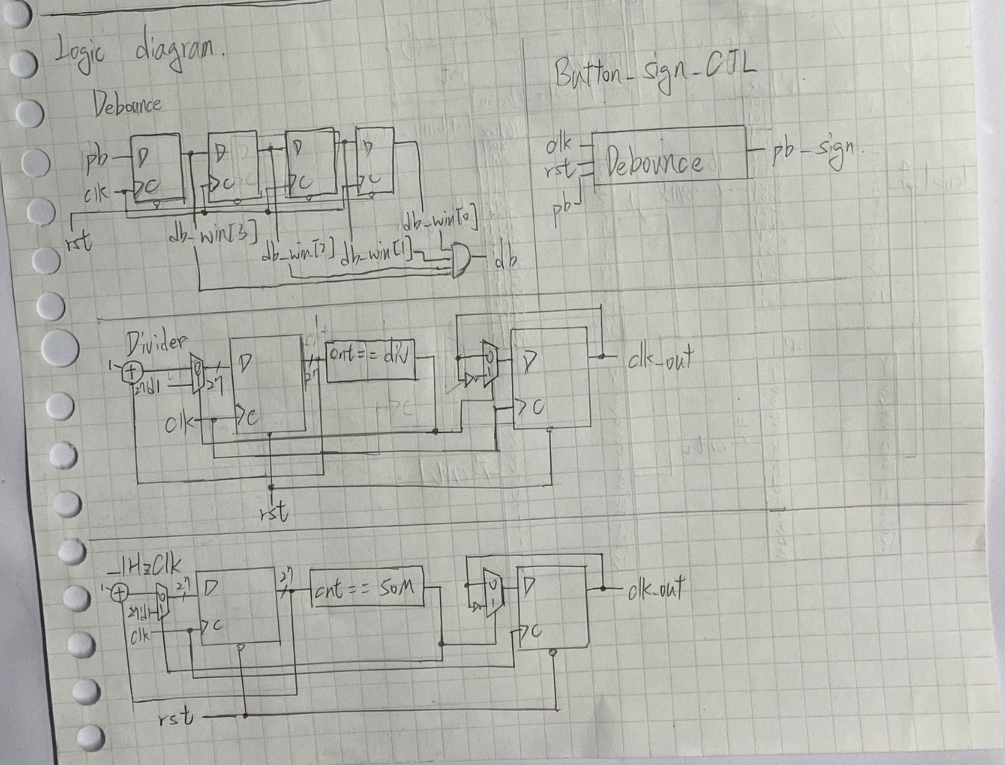 Logic diagram.
Debounce
pb
D
D
D
D
clk
C
C
C
C
rst
db_win[3]
db_win[2]
db_win[1]
db_win[0]
db
Button_sign_CTL
clk
rst
pb
Debounce
pb_sign
Divider
1
+
27'd1
0
1
27
D
27
cnt == div
0
1
D
clk_out
clk
C
C
rst
1HzClk
1
+
27'd1
0
1
27
D
27
cnt == 50M
0
1
D
clk_out
clk
C
C
rst